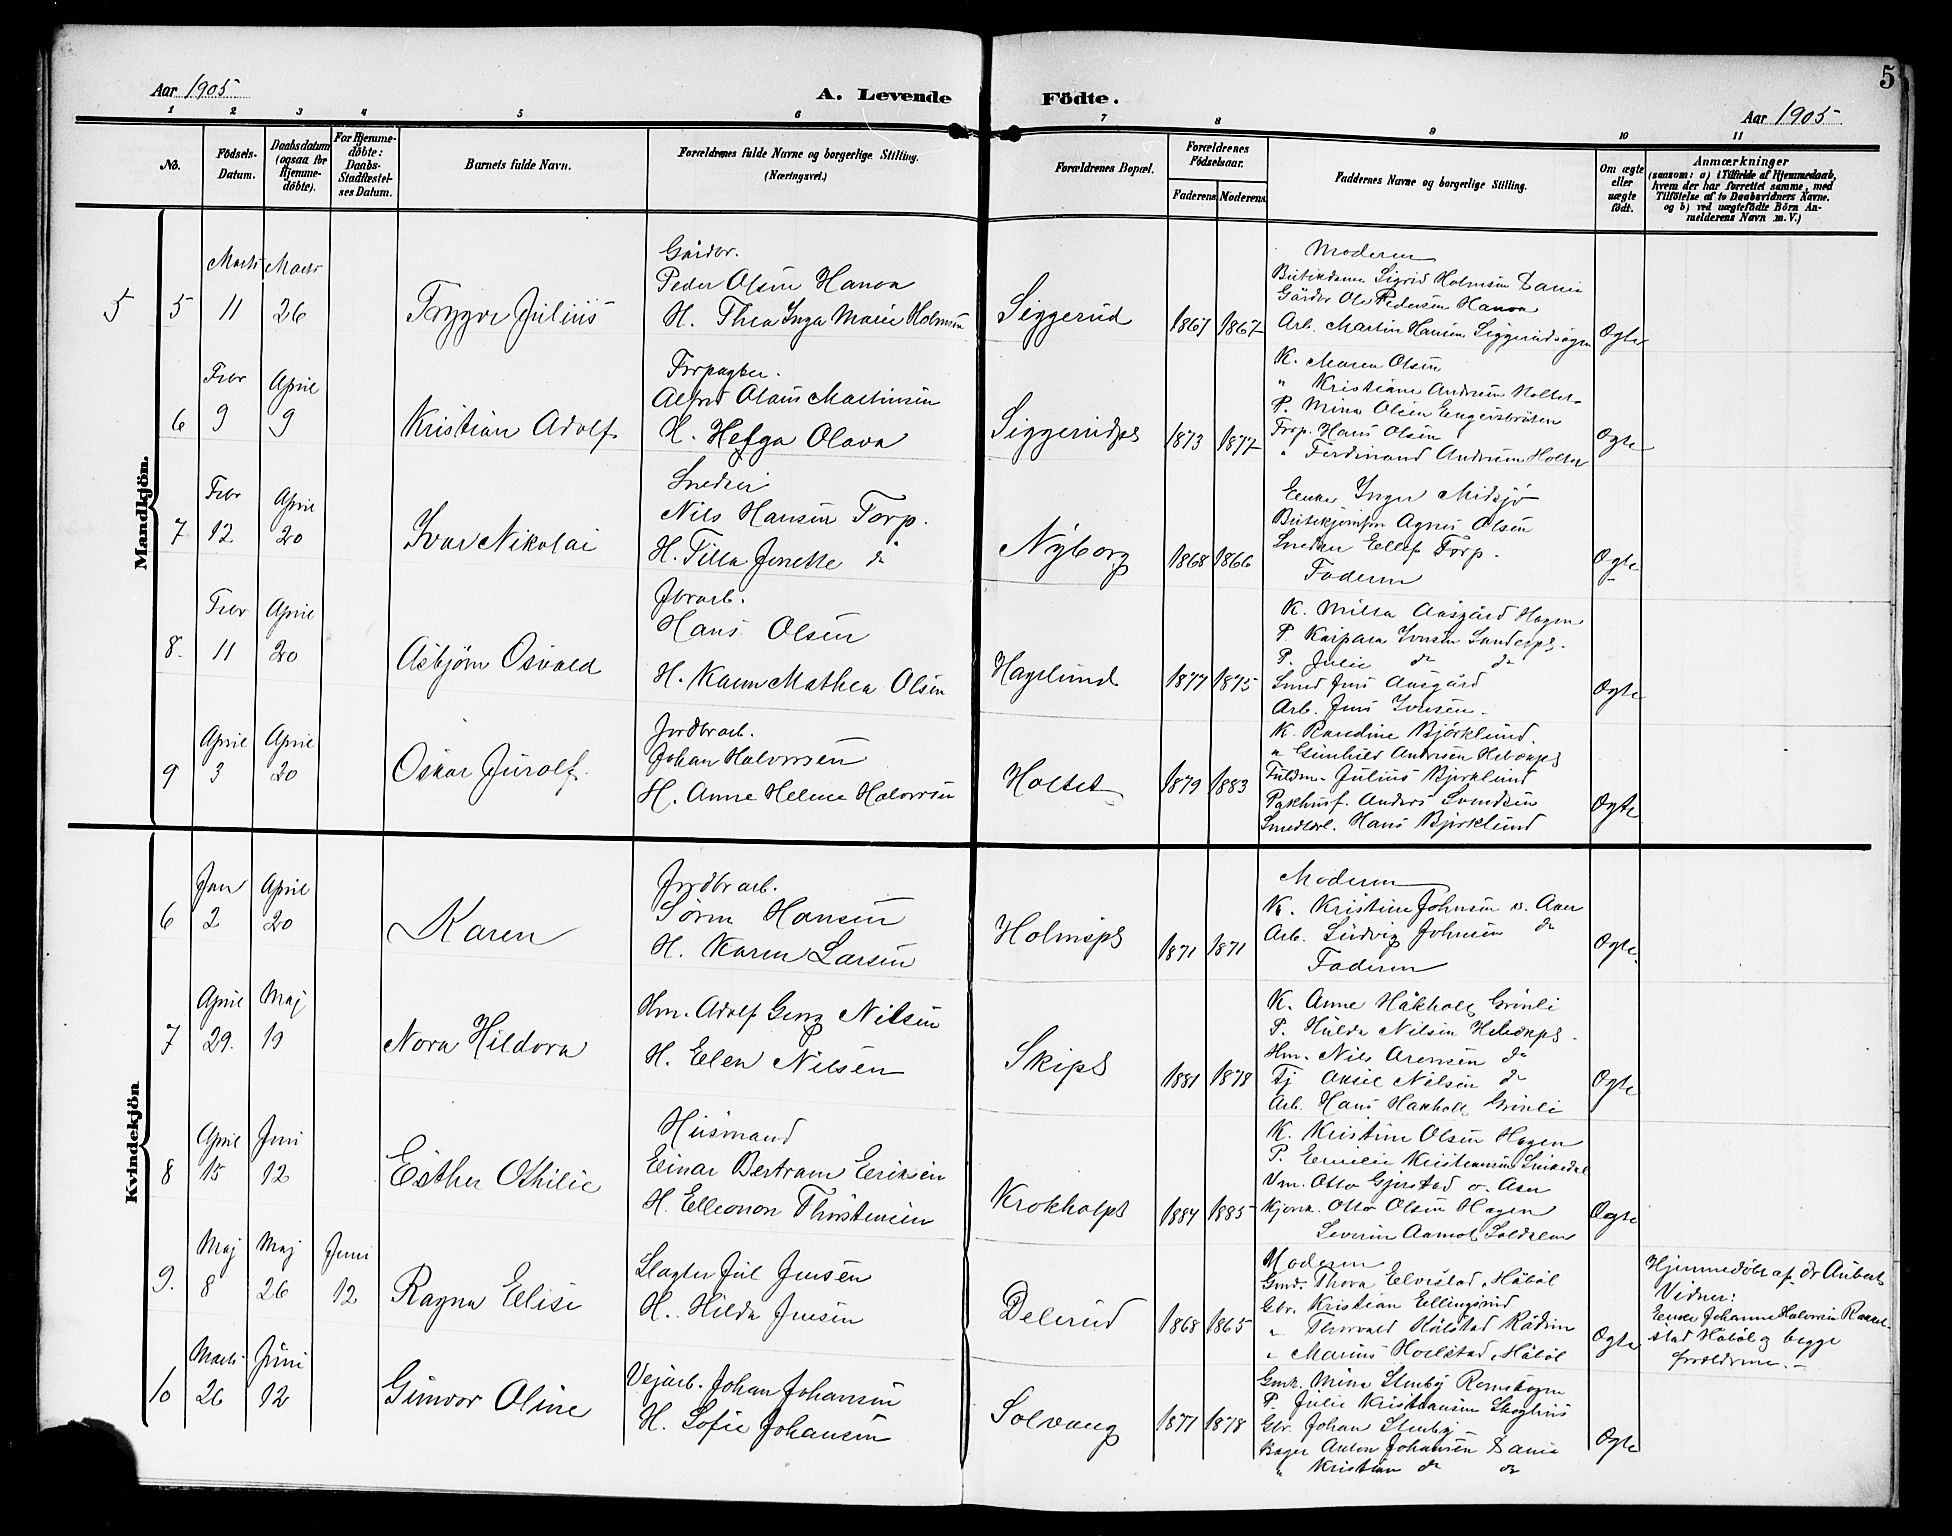 5
Aar 1905
A. Levende Födte.
Aar 1905
1 2 3 4 5 6 7 8 9 10 11
No.
Födsels-Datum.
Daabsdatum (ogsaa for Hjemme-döbte).
For Hjemme-döbte: Daabs-Stadfæstel-ses Datum.
Barnets fulde Navn.
Forældrenes fulde Navne og borgerlige Stilling. (Næringsvei.)
Forældrenes Bopæl.
Forældrenes Födselsaar.
Faderens Moderens
Faddernes Navne og borgerlige Stilling.
Om ægte eller uægte födt.
Anmærkninger
(saasom: a) i Tilfælde af Hjemmedaab,
hvem der har forrettet samme, med
Tilföielse af to Daabsvidners Navne.
og b) ved uægtefödte Börn An-
melderens Navn m. V.)
Mandkjön.
5 5 Marts 11 Marts 26
Trygve Julius
Gårdbr.
Peder Olsen Hanoa
H. Thea Inga Marie Holmsen
Siggerud 1867 1867
Moderen
Butikdame Sigrid Holmsen Dania
Gårdbr Ole Pedersen Hanoa
Arb. Martin Hansen Siggerudsögn
Ægte
6 Febr 9 April 9
Kristian Adolf
Forpagter.
Alfred Olaus Martinsen
H. Helga Olava
Siggerudps 1873 1877
K. Maren Olsen
" Kristiane Andersen Holter
P. Mina Olsen Engersbråten
Forp. Hans Olsen
" Ferdinand Andersen Holter
Ægte
7 Febr 12 April 20
Ivar Nikolai
Snedker
Nils Hansen Torp.
H. Tilla Jenette do
Nyborg 1868 1866
Enke Inger Midsjö
Butikjomfru Agnes Olsen
Snedker Ellef Torp.
Faderen
Ægte
8. Febr 11 April 20
Asbjörn Osvald
Jbrarb.
Hans Olsen
H. Karen Mathea Olsen
Hagelund 1877 1875
K. Milla Aasgård Hagen
P. Kaspara Iversen Sunderps.
P. Julie do do
Smed Jens Aasgård
Arb. Jens Iversen.
Ægte
9 April 3 April 20
Oskar Jurolf.
Jordbrarb.
Johan Halvorsen
H. Anne Helene Halvorsen
Holtet 1879 1883
K. Randine Björklund.
" Gunhild Andersen Hebækps
Fuldm. Julius Bjorklund
Pakhusf. Anders Svendsen
Snedkerl. Hans Bjorklund
Ægte
Kvindekjön
6 Jan 2 April 20
Karen
Jordbrarb.
Sören Hansen
H. Karen Larsen
Holmsps 1871 1871
Moderen
K. Kristine Johnsen v. Aaer
Arb. Ludvig Johnsen do
Faderen
Ægte.
7 April 29. Maj 19
Nora Hildora
Hm. Adolf Georg Nilsen
H. Elen Nilsen
Skips 1881 1878
K. Anne Håkholt Grinli
P. Hulda Nilsen Hebækps.
Hm. Nils Arensen do
Tj Aksel Nilsen do
Arb. Hans Hakholt Grinli
Ægte
8 April 15 Juni 12
Esther Othilie
Husmand
Einar Bertram Eriksen
H. Elleonor Thorstensen
Krokholps 1884 1885
K. Kristine Olsen Hagen
P. Emelie Kristiansen Smedal
Vm. Otto Gjerstad v. Aaer
Kjorek. Otto Olsen Hagen
Severin Aamot, Soldalen
Ægte
9. Maj 8 Maj 26 Juni 12
Ragna Elise
Slagter Jul Jensen
H. Hilda Jensen
Delerud 1868 1865
Moderen
Gmd. Thora Elvestad, Håböl
Gbr. Kristian Ellingsrud
" Thorvald Holstad Råden
" Marius Holstad, Håböl
Ægte
Hjemmedöbt af Dr Aubert
Vidner:
Enke Johanne Halvorsen Rakkestad Håböl og begge
forældrene.
10 Marts 26 Juni 12
Gunvor Oline
Vejarb. Johan Johansen
H. Sofie Johansen
Solvang 1877 1878
Gmk. Mina Stenby Romskogen
P. Julie Kristiansen Skoghus
Gbr. Johan Stenby
Bager Anton Johansen Dania
" Kristian do do
Ægte